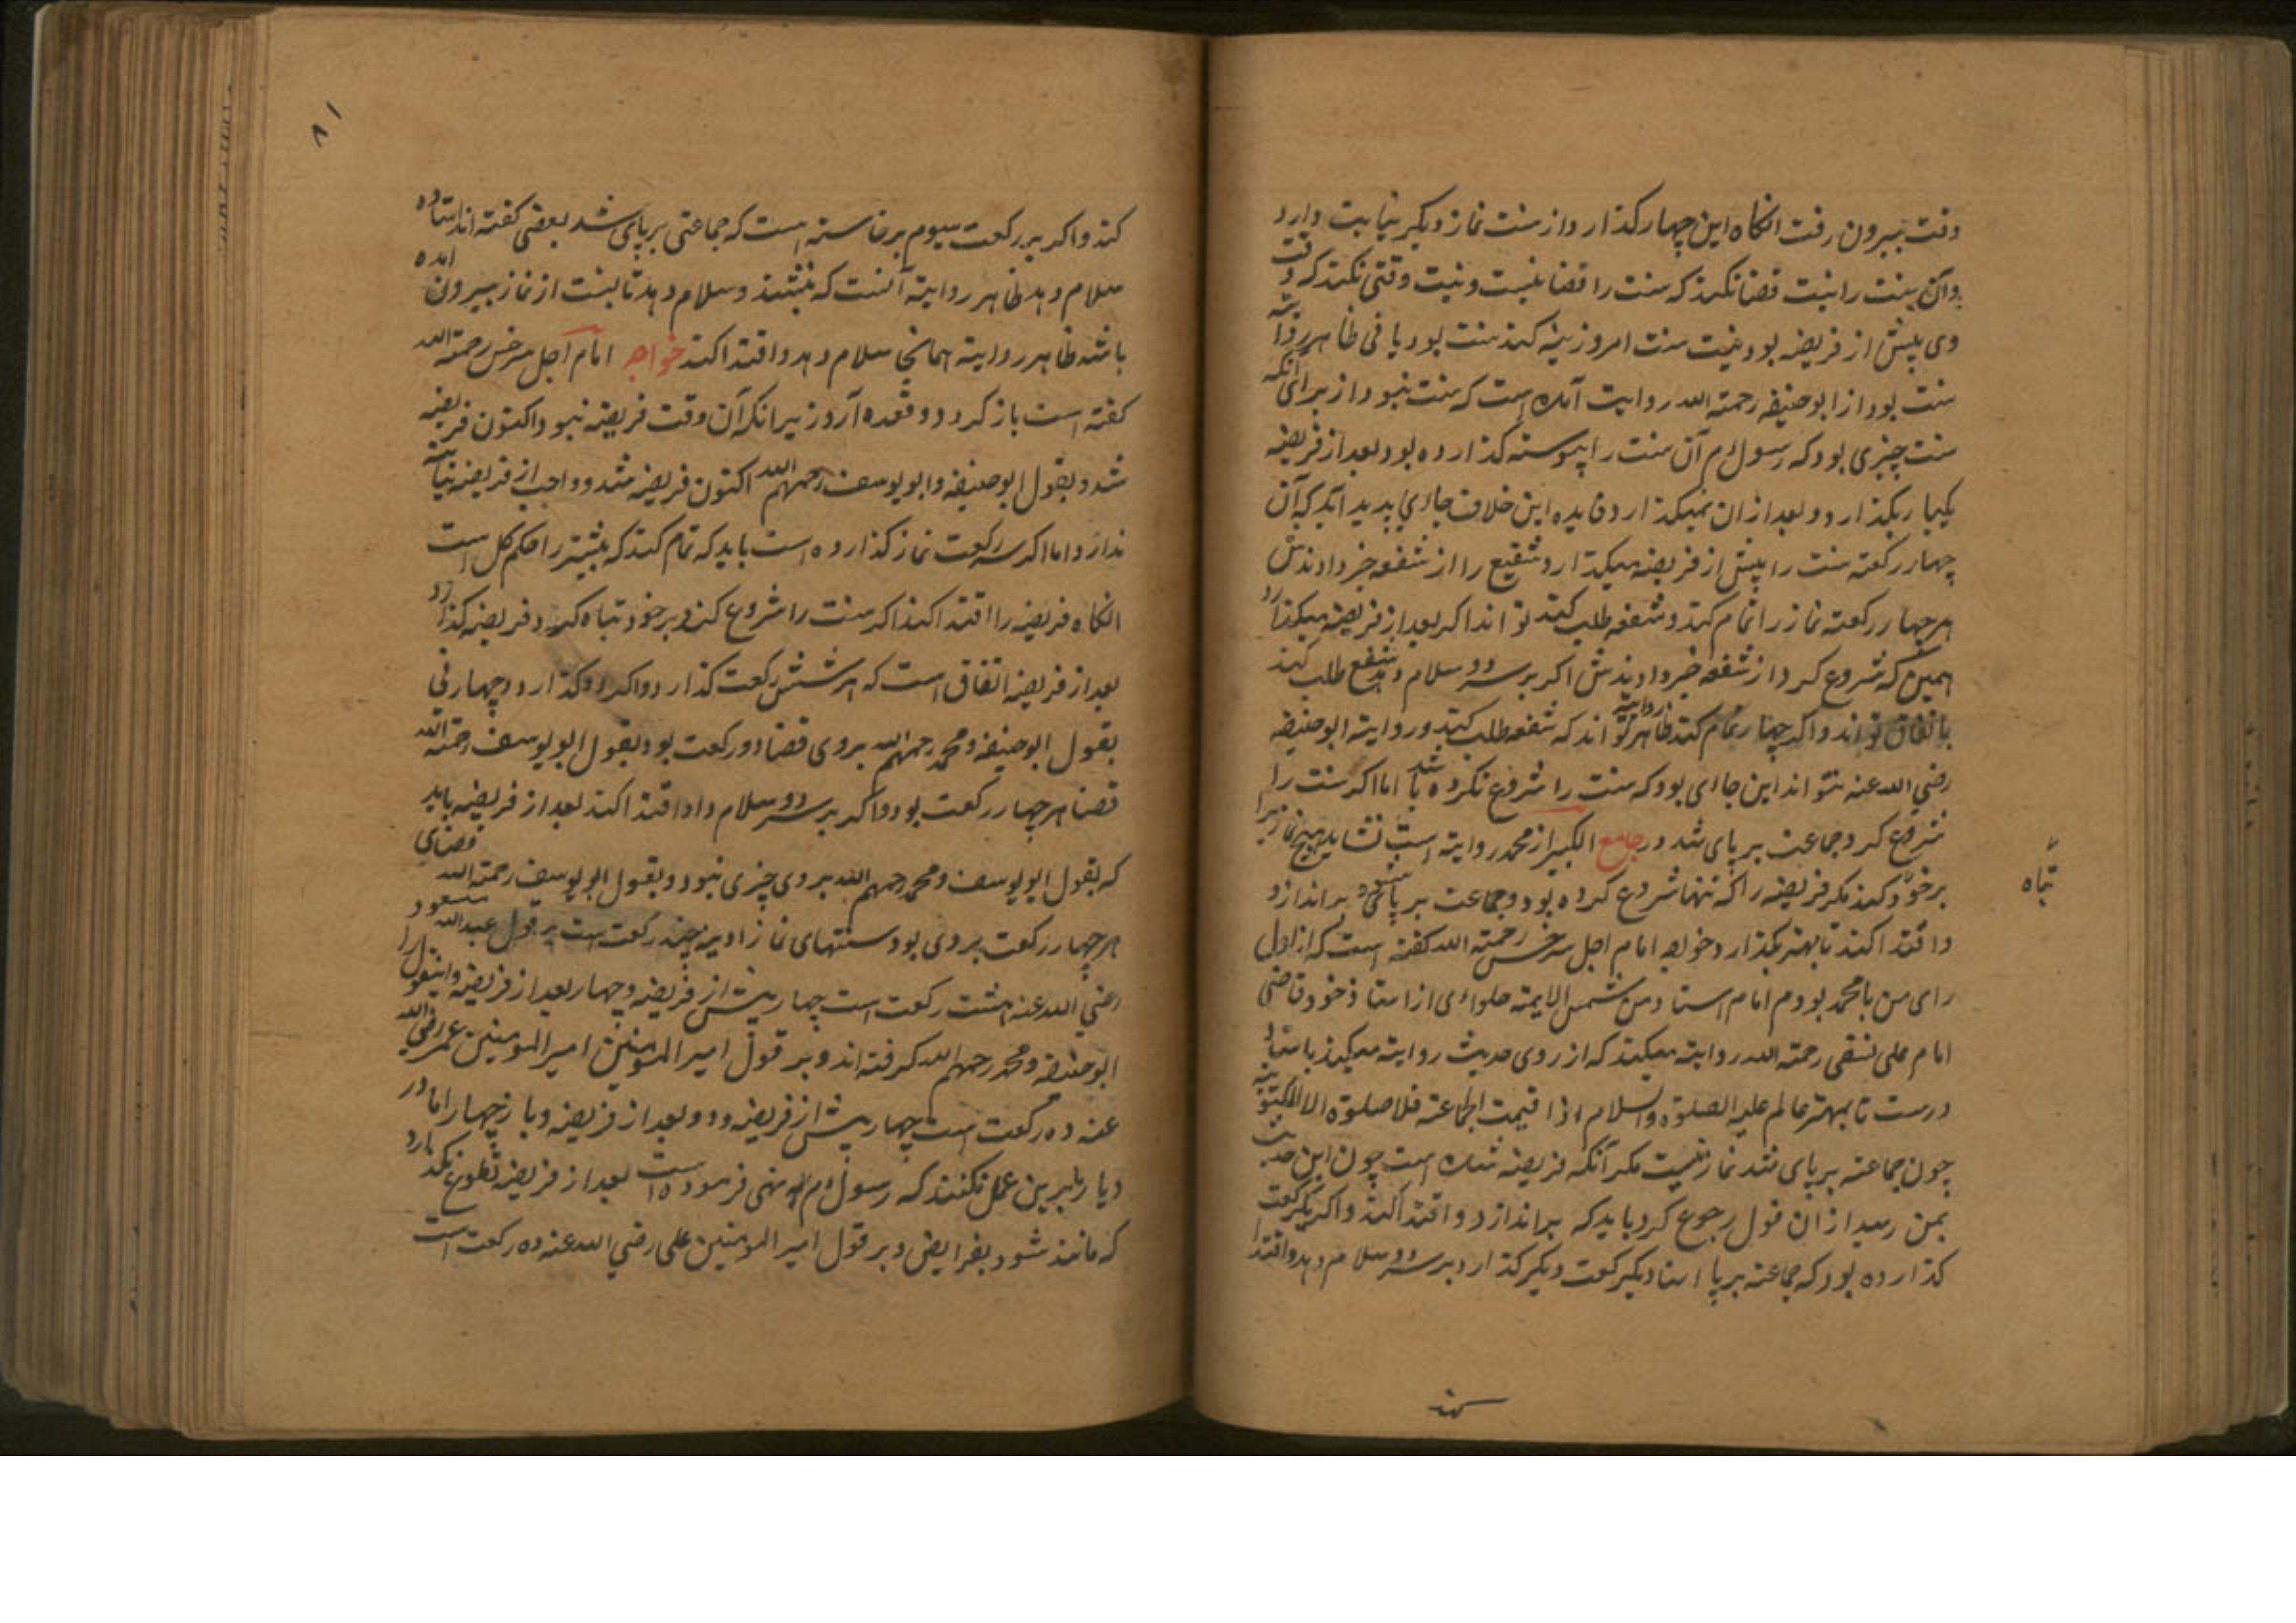 وقت بیرون رفت انکاه این چهار کذارد واز سنت نماز دیکر نیابت دارد
وآن سنت را نیت قضا نکند که سنت را قضا نیست ونیت وقتی نکند که وقت
وی پیش از فریضه بود نیت سنت امروزینه کند سنت بود یا فی ظاهر روایته
سنت بود از ابوحنیفه رحمته الله روایت آمده است که سنت نبود از برای آنکه
سنت چیزی بود که رسول م آن سنت را پیوسته کذارده بود وبعد از فریضه
یکبار بکذارد وبعد از ان نمیکذارد فایده این خلاف جاای پدید آید که آن
چهار رکعته سنت را پیش از فریضه میکذارد شفیع را از شفعه خبر دادندش
هر چهار رکعته نماز را تمام کند وشفعه طلب کند تواند اکر بعد از فریضه میکذارد
همین که شروع کرد از شفعه خبر دادندش اکر بر سر دو سلام دهد شفع طلب کند
باتفاق تواند واکر چهار تمام کند ظاهر روایته تواند که شفعه طلب کند ودر روایته ابوحنیفه
رضي الله عنه نتواند این جاای بود که سنت را شروع نکرده باشد اما اکر سنت را
شروع کرد وجماعت بر پای شد در جامع الکبیر از محمد روایته است نشاید هیچ نماز برا
تباه
برخود کند مکر فریضه را که تنها شروع کرده بود وجماعت بر پای شود براندازد
واقتدا کند تا بهتر بکذارد وخواجه امام اجل سرخسی رحمته الله کفته است که از اول
رای من با محمد بودم امام استاد من شمس الایمته حلوائی از استاذ خود قاضی
امام علی نسفی رحمته الله روایته میکند که از روی حدیث روایته میکند باسناد
درست تا بمهتر عالم علیه الصلوة والسلام اذا اقیمت الجماعته فلا صلوة الا المکتوبته
چون جماعته بر پای شد نماز نیست مکر آنکه فریضه شده است چون این حدیث
بمن رسید از ان قول رجوع کرد باید که براندازد واقتدا کند واکر یکرکعت
کذارده بود که جماعته بر پا استاد یکرکعت دیکر کذارد بر سر دو سلام دهد واقتدا
کند
۸۱
کند واکر بر رکعت سیوم برخاسته است که جماعتی بر پای شد بعضی کفته اند استاده
سلام دهد ظاهر روایته آنست که بنشیند وسلام دهد تا بسنت از نماز بیرون امده
باشد ظاهر روایته همانجا سلام دهد واقتدا کند خواجه امام اجل سرخسی رحمته الله
کفته است باز کردد وقعده آرد زیرا نکه آن وقت فریضه نبود اکنون فریضه
شد وبقول ابوحنیفه وابو یوسف رحمهم الله اکنون فریضه شد وواجب از فریضه نیابته
ندارد اما اکر سه رکعت نماز کذارده است باید که تمام کند که بیشتر را حکم کل است
انکاه فریضه را اقتدا کند اکر سنت را شروع کند وبر خود تباه کرد وفریضه کذارد
بعد از فریضه اتفاق است که هر شش رکعت کذارد واکر دو کذارد وچهار نی
بقول ابوحنیفه ومحمد رحمهم الله بر وی قضا دو رکعت بود وبقول ابو یوسف رحمته الله
قضا هر چهار رکعت بود واکر بر سر دو سلام داد اقتدا کند بعد از فریضه باید
که بقول ابو یوسف ومحمد رحمهم الله بر وی چیزی نبود وبقول ابو یوسف رحمته الله قضای
هر چهار رکعت بر وی بود سنتهای نماز ادینه چند رکعت است بر قول عبدالله مسعود
رضي الله عنه هشت رکعت است چهار پیش از فریضه وچهار بعد از فریضه واینقول را
ابوحنیفه ومحمد رحمهم الله کرفته اند وبر قول امیر المومنین امیر المومنین عمر رضي الله
عنه ده رکعت است چهار پیش از فریضه ودو بعد از فریضه وباز چهار اما در
دیار ما برین عمل نکنند که رسول م نهی فرموده است بعد از فریضه تطوع نکذارد
که مانند شود بفرایض وبر قول امیر المومنین علی رضي الله عنه ده رکعت است